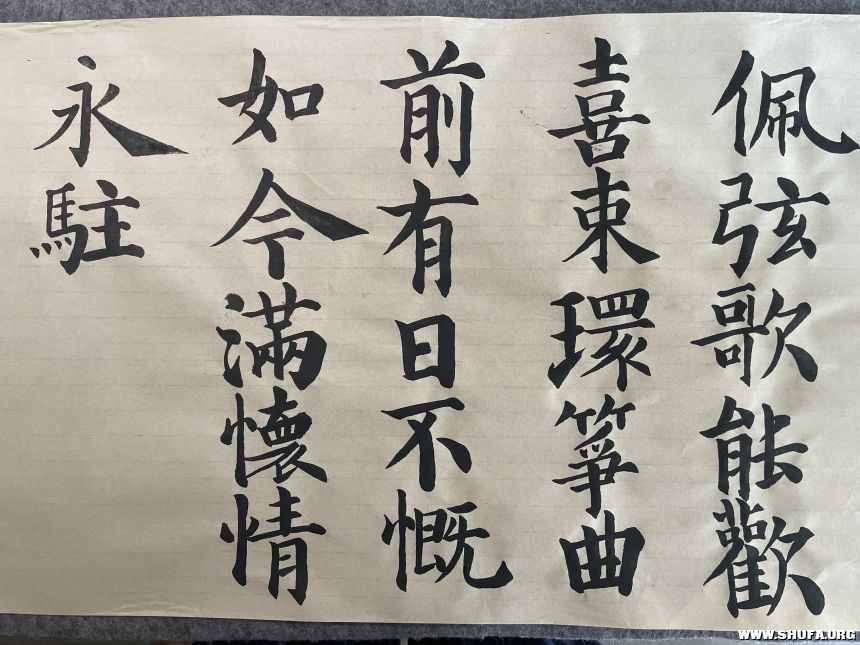 佩弦歌能歡
喜束環箏曲
前有日不慨
如今滿懷情
永駐
WWW.SHUFA.ORG